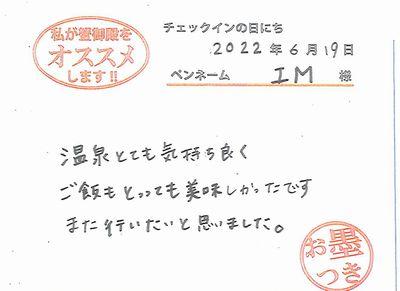 私が蟹御殿を
オススメ
します!!
チェックインの日にち
2022年6月19日
ペンネーム IM 様
温泉とても気持ち良く
ご飯もとっても美味しかったです
また行いたいと思いました。
お墨
つき